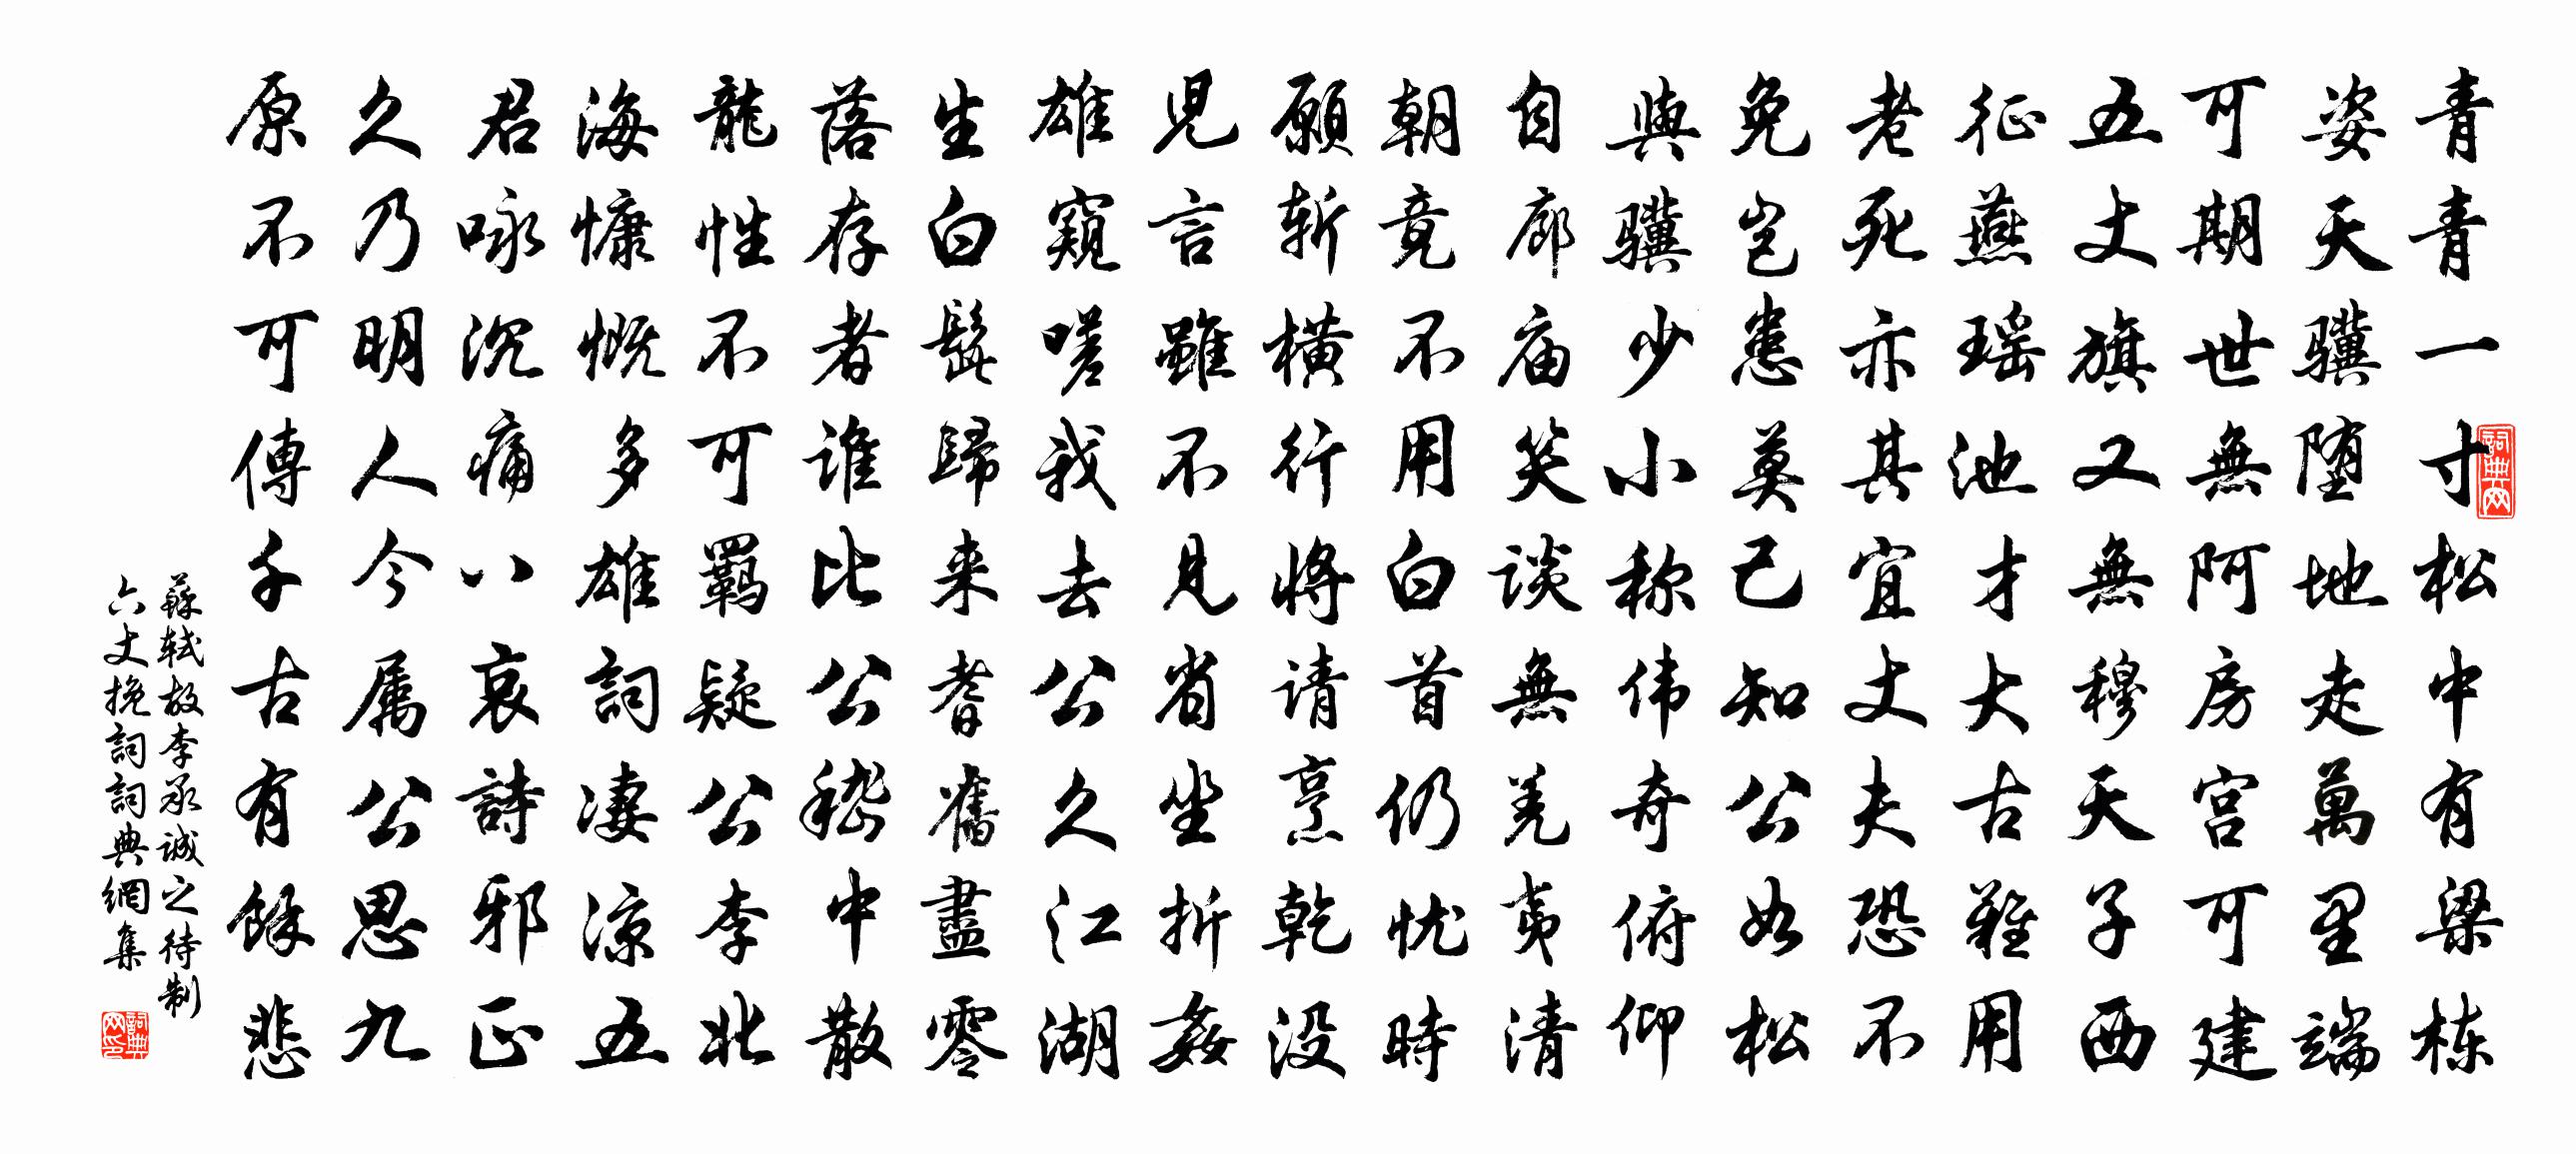 青青一寸松中有梁栋
姿天骥堕地走萬里端
可期世無阿房宫可建
五丈旗又無穆天子西
征燕瑶池才大古難用
老死亦其宜丈夫恐不
免岂患莫己知公如松
與骥少小称伟奇俯仰
自廊庙笑谈無羌夷清
朝竟不用白首仍忧時
願斩横行将请烹乾没
児言雖不見省坐折姦
雄窺嗟我去公久江湖
生白髭歸来耆舊盡零
落存者谁比公嵇中散
龍性不可羈疑公李北
海慷慨多雄詞凄涼五
君咏沉痛八哀詩邪正
久乃明人今属公思九
原不可傳千古有餘悲
蘇轼故李承诚之待制
六丈挽詞詞典網集
詞典网
詞典网印